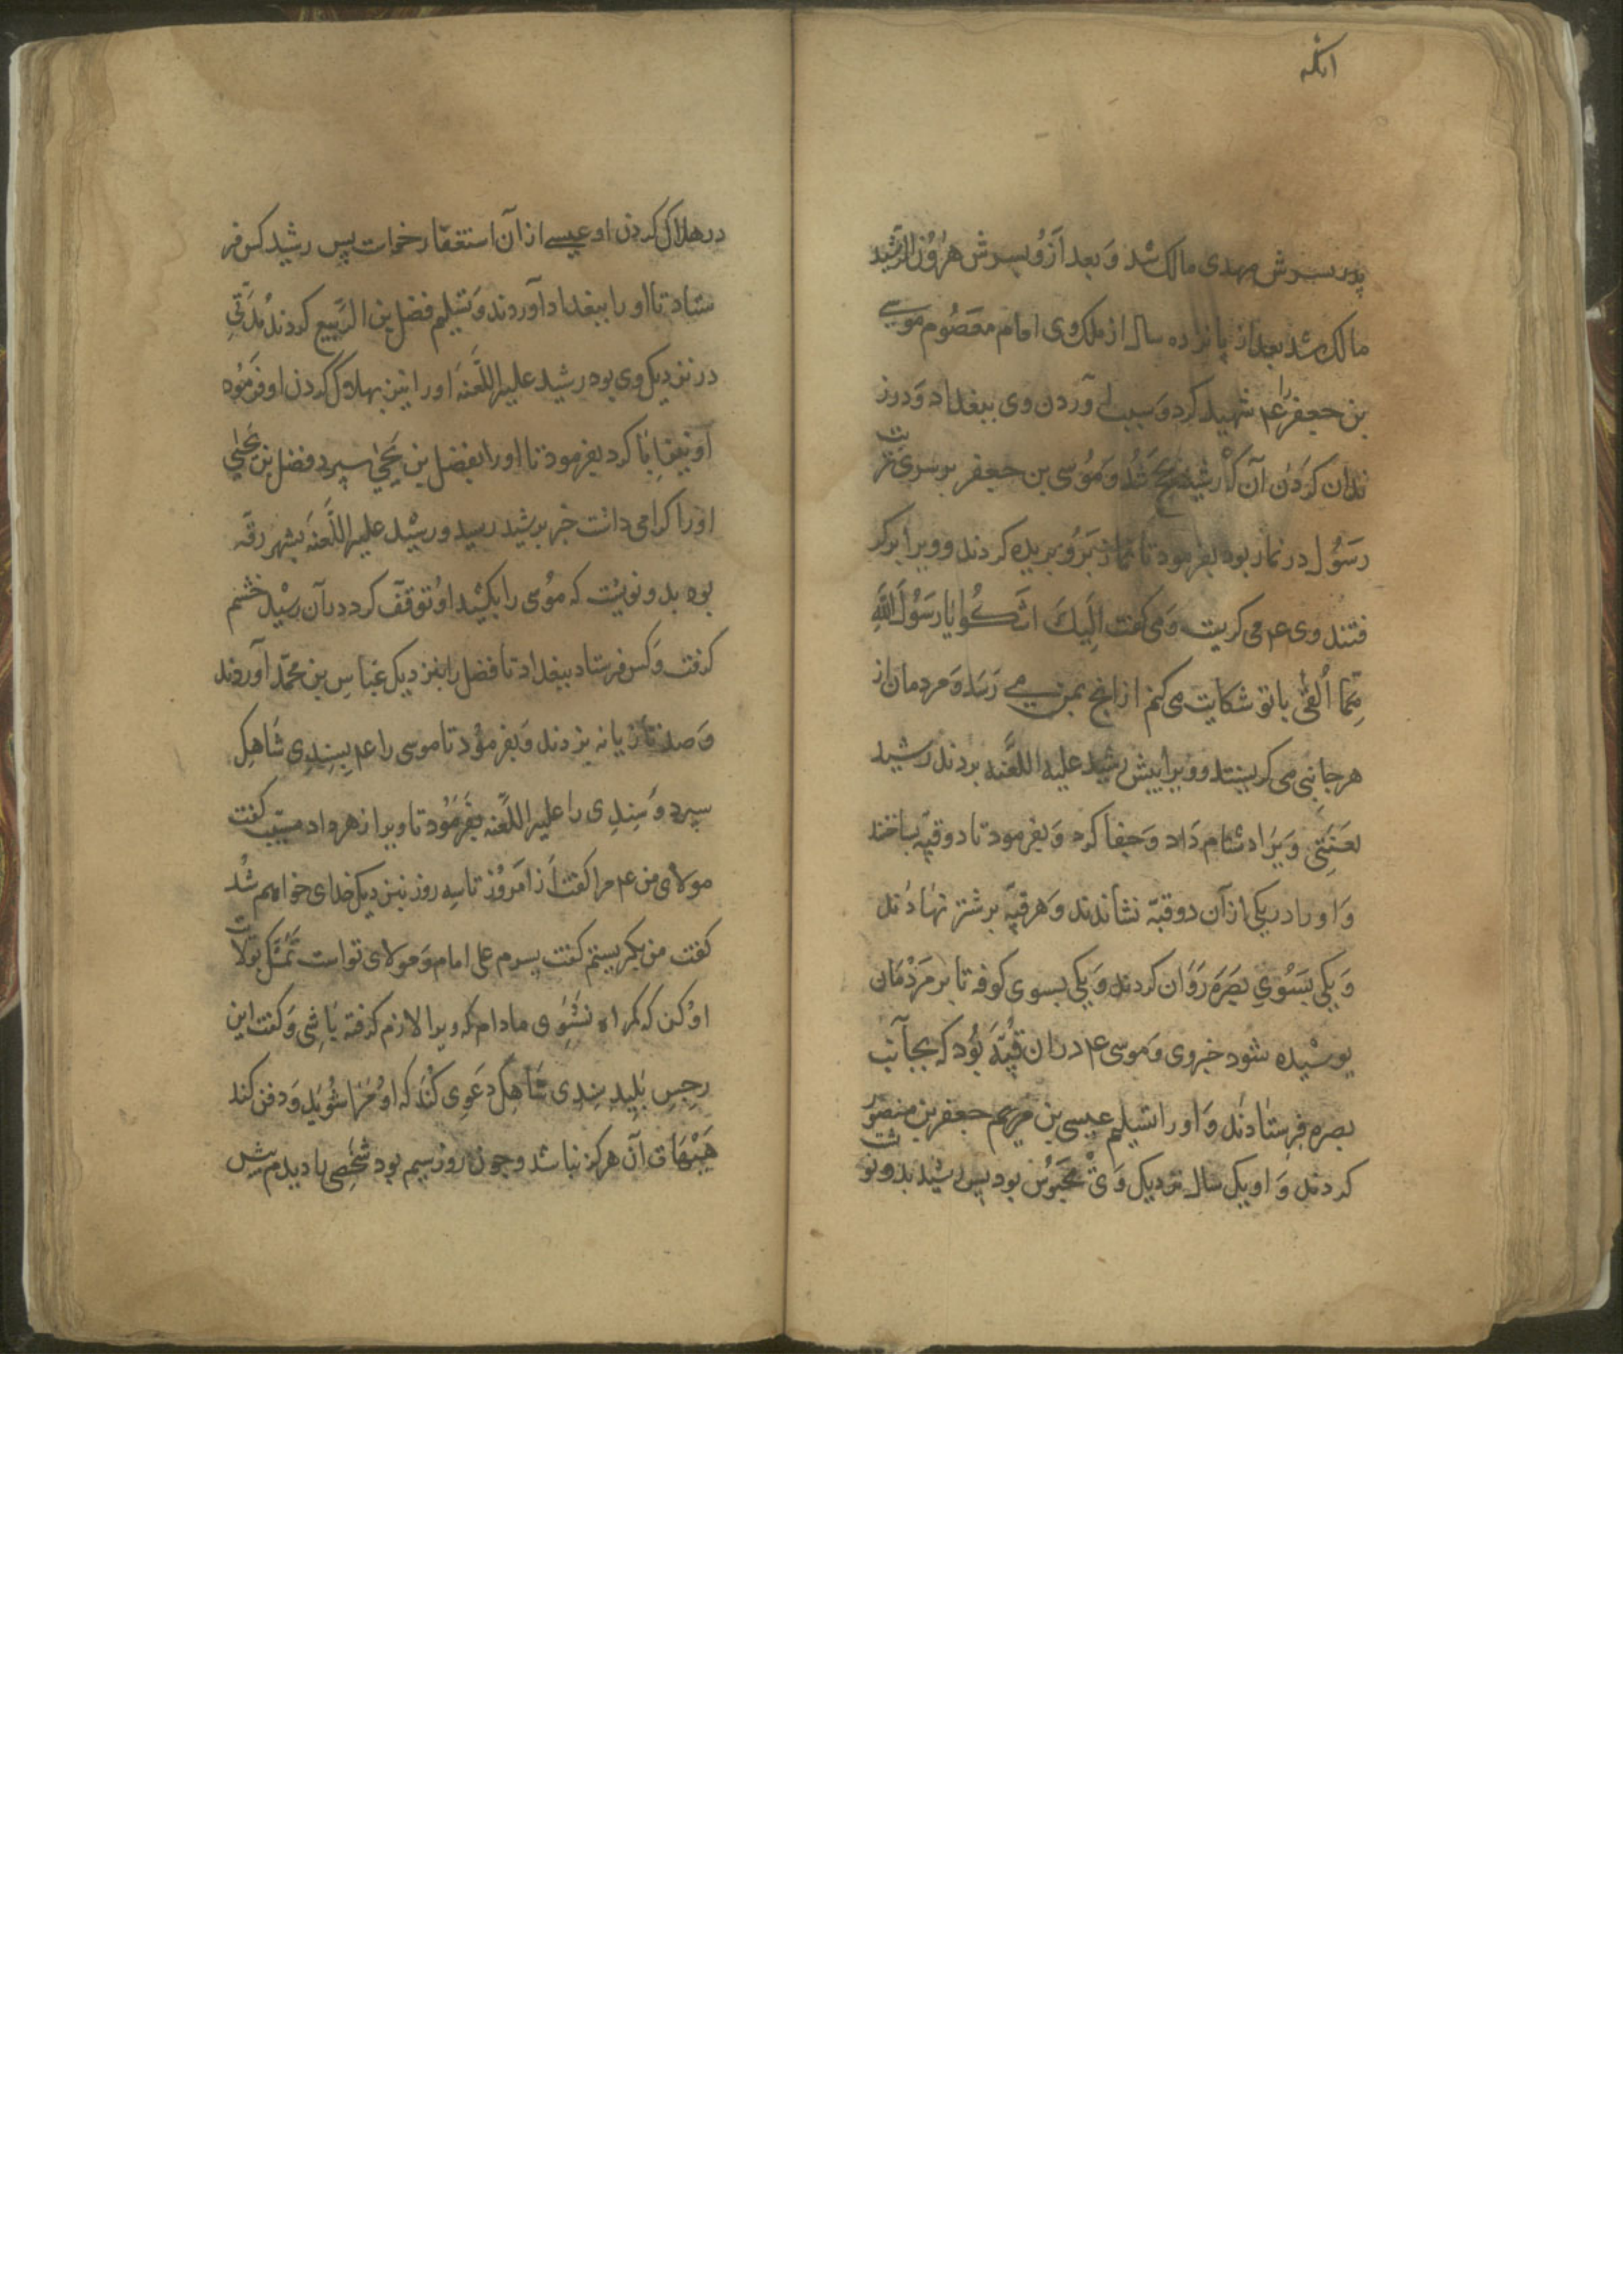 انکه
پدر سرش مهدی مالک شد وَ بعد اَزوُ پسرش هٰرُوُن الرَّشید
مالک شد بعد از پانزده سال از ملک وی امام معصُوم موسی
بن جعفر را ع۴ شهید کرد وَ سبب آوردن وی ببغداد وَ در زن
ندان کردن آن کی رشید بحج شُد وَ مُوُسی بن جعفر بر سر تربت
رسَوُل در نماز بود بفرمود تا نماز بَرُو بریده کردند و ویرا برگر
فتند وی ع۴ می کریست وَ می کفت اِلَیكَ اَشکُوا یا رَسُوُلَ اللّٰهِ
مِمّا اُلقی با تو شکایت می کنم از انچ بمن می رَسَد وَ مردمان از
هر جانبی می کریستند و ویرا پیش رشید علیه اللَّعنه بردند رشید
لعنتی وَیرا دشنام دٰاد وَ جفا کرد وَ بفرمود تا دو قبّه ساختند
وَ او را در یکی از آن دو قبّه نشاندند وَ هر قبّه بر شتر نهٰادند
وَ یکی بسَوُیِ بصره رَوٰان کردند وَ یکی بسوی کوفه تا بر مَرْدُمٰان
پوشیْده شوَد خبر وی وَ موسی ع۴ دران قبّه بوُد که بجانب
بصره فرستٰادند وَ او را تسلیم عیسی بن جعفر بن منصوُر
کردند وَ او یک سال نزدیک وَی محبوُس بود پس رشید بدو نوشت
در هلاک کردن او عیسی از آن استعفا خواست پس رشید کس فر
ستاد تا او را ببغداد آوردند وَ تسلیم فضل بن الرَّبیع کردند مُدَّتی
در نزدیک وی بود رشید علیه اللَّعنَه او را نیز بهلاک کردن او فَرَموُد
او نیز اِبٰا کرد بفرمود تا او را بفضل بن یَحیٰی سپرد فضل بن یحیٰی
اورا کرامی داشت خبر برشید رسید و رشید علیه اللَّعنَه بشهر رقّه
بود بدو نوِشت که موُسی را بکشید او توقّف کرد در آن رشید خشم
کرفت وَ کس فرستاد ببغداد تا فضل را بنزدیک عبّاسِ بن محمّد آوردند
وَ صد تازیانه بزدند وَ بفرموُد تا موسی را ع۴ بسِندِی شاهِک
سپرد وَ سِندِی را علیه اللَّعنه بفَرموُد تا ویرا زهر داد مسیّب کفت
مولای من ع۴ مرا کفت اَز امروُز تا سِه روز بنزدیک خدای خواهم شُد
کفت من بکریستم کفت پسرم علی امام وَ مولای تو است تَمَسّک بولایت
اوُ کن که کمراه نشَوِی مادام که ویرا لازم کرفته باشی وَ کفت این
رِجسِ پَلید سِندِی شاهِک دعوِی کنَد که اوُ مَرا شُوید وَ دفن کند
هَیْهٰات آن هرکز نباشد و چون روز سیم بود شخصِی را دیدم پیش